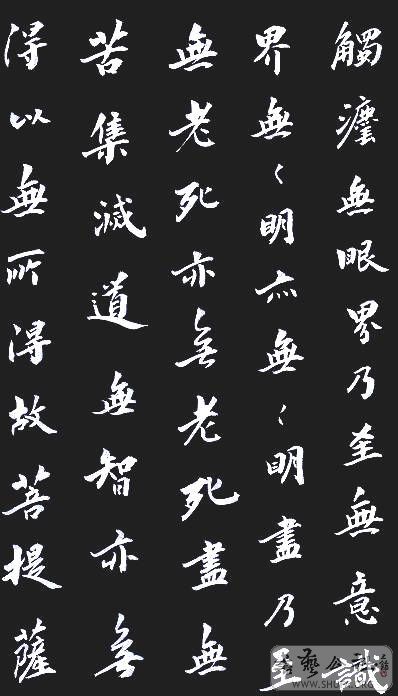 觸灋無眼界乃至無意識
界無々明亦無々明盡乃至
無老死亦無老死盡無
苦集滅道無智亦無
得以無所得故菩提薩